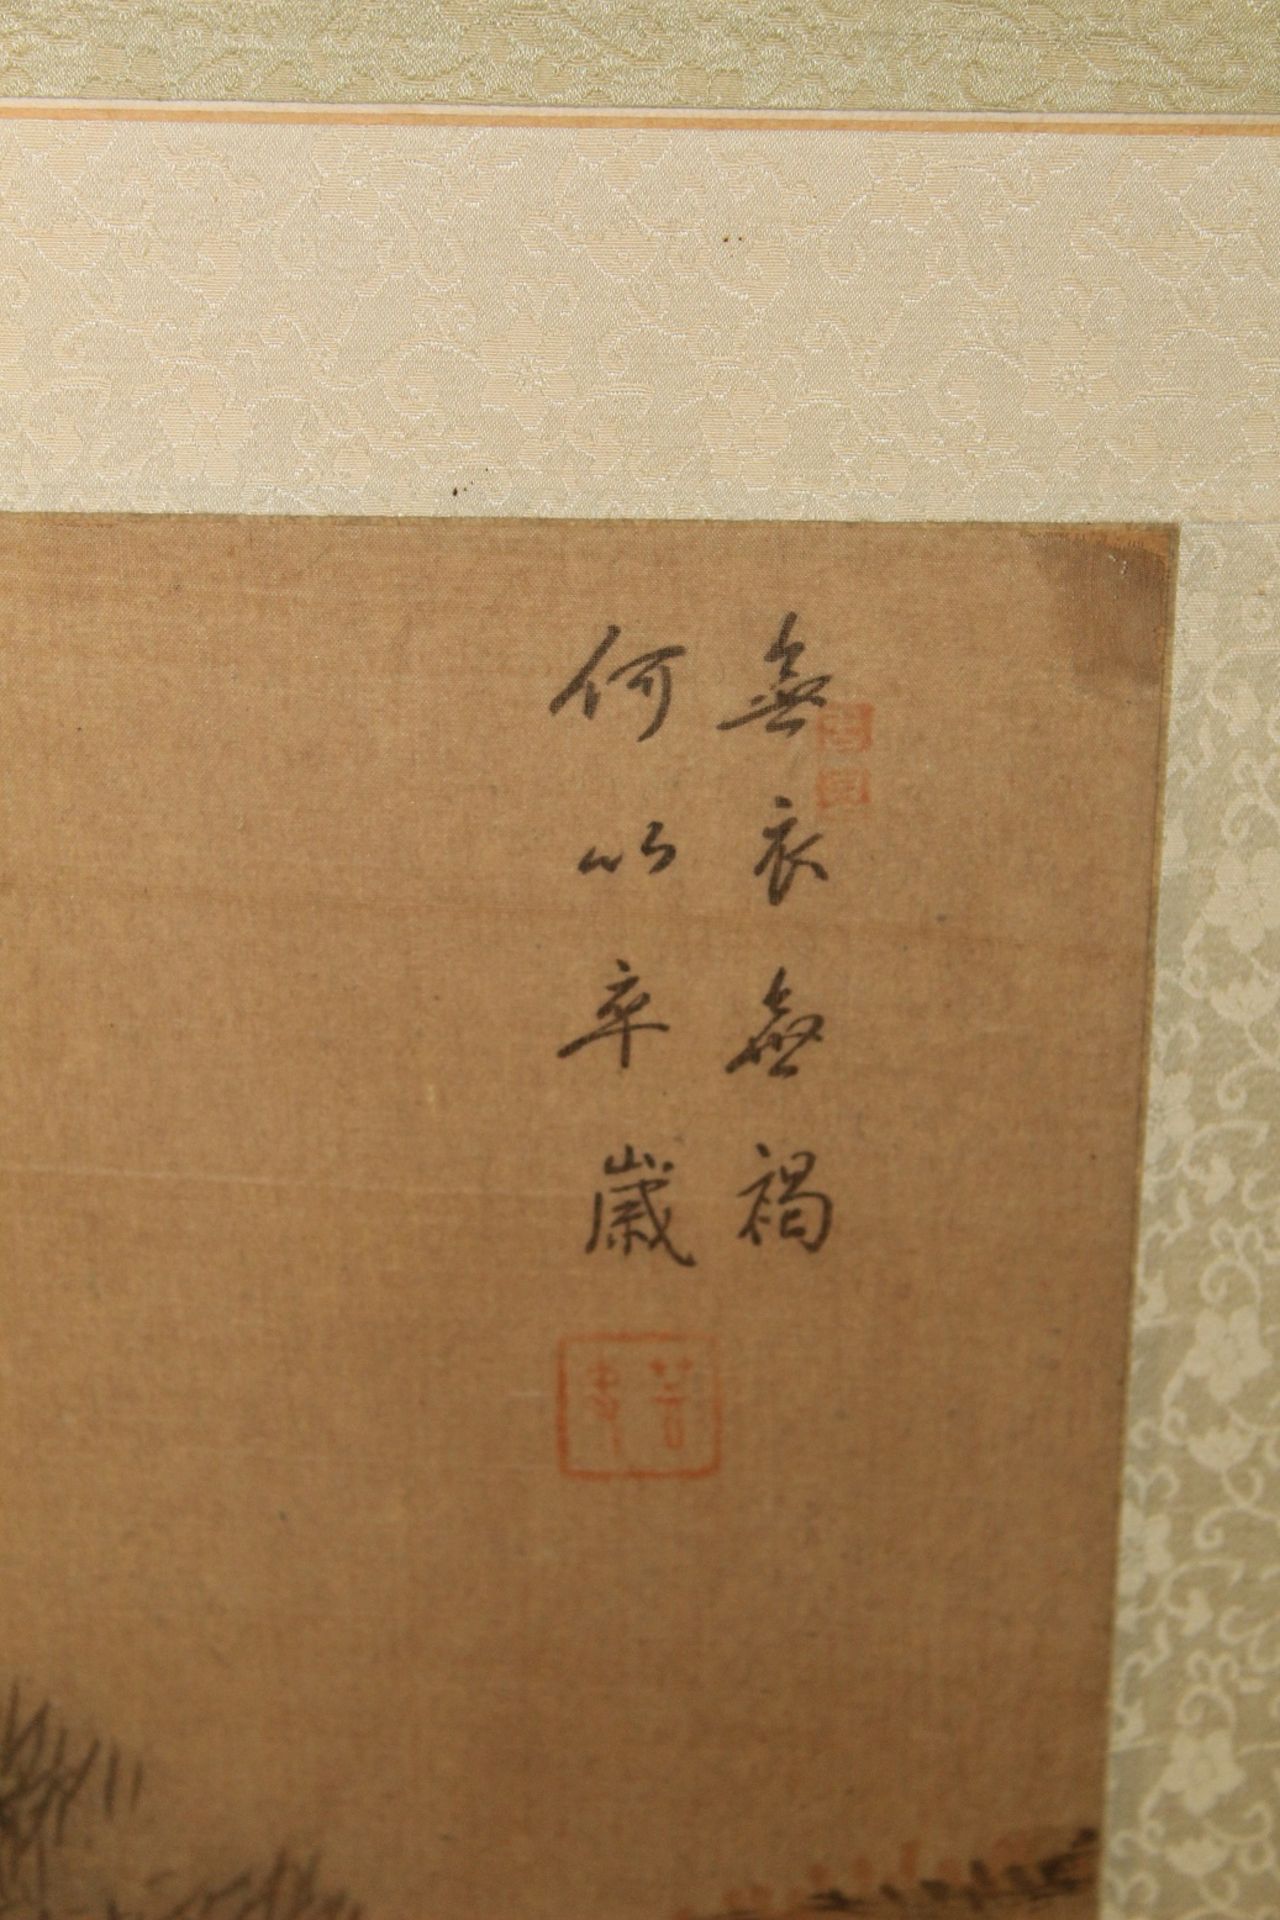 無衣無褐
何以卒歲